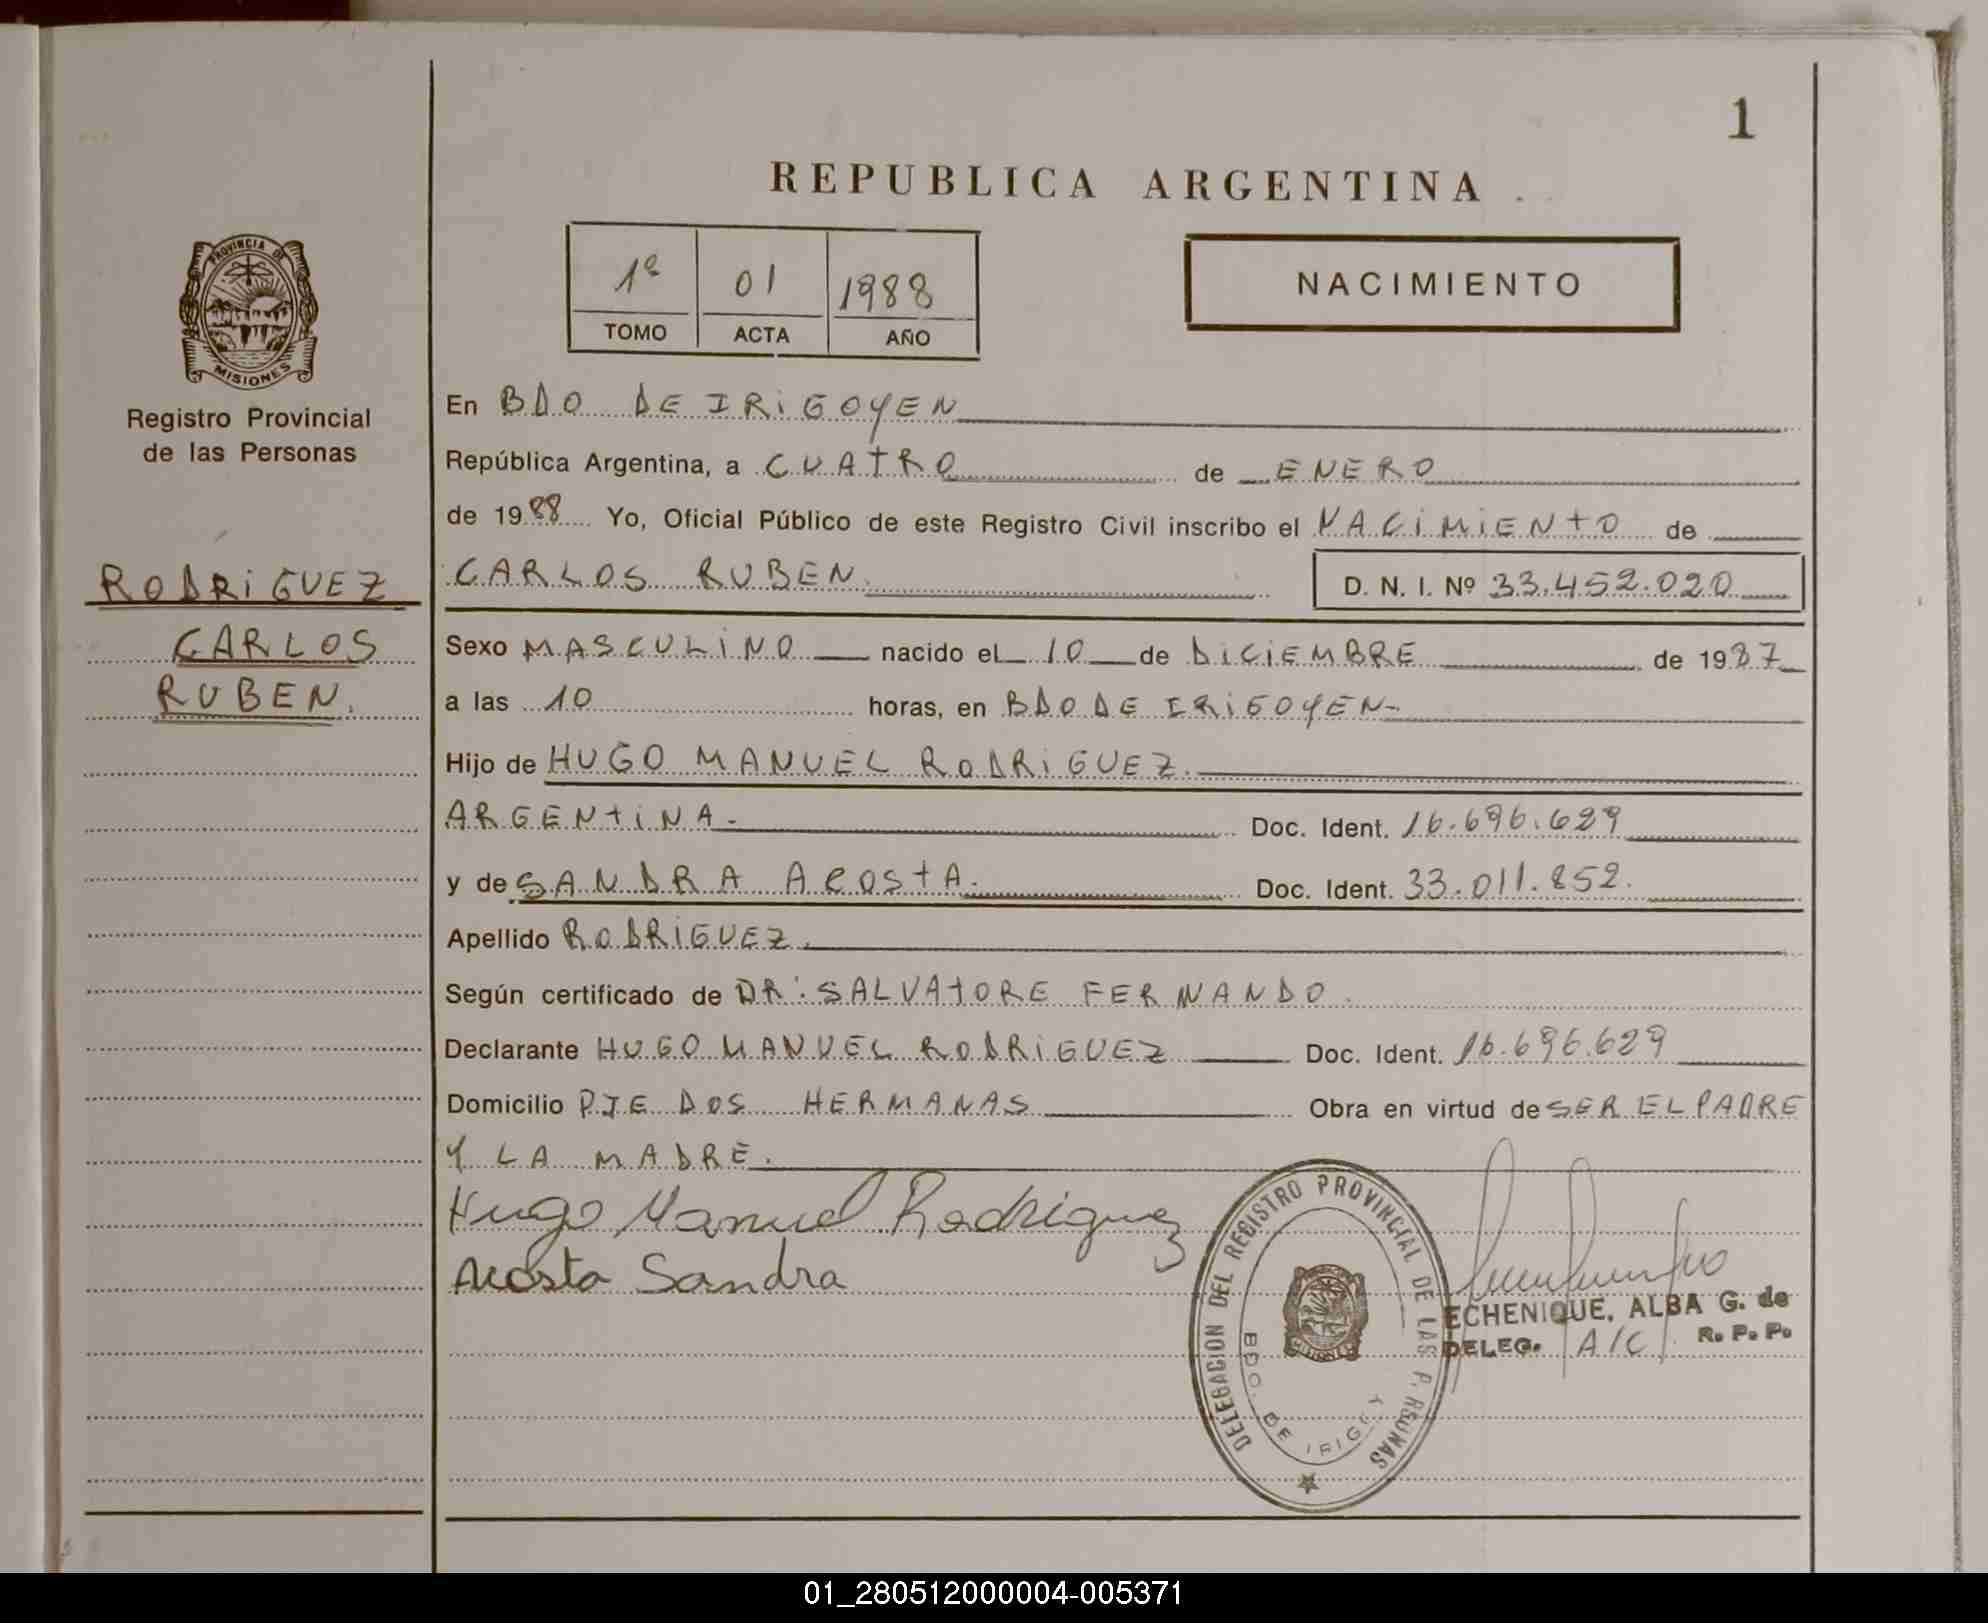 1
REPUBLICA ARGENTINA
1º 01 1988
TOMO ACTA AÑO
NACIMIENTO
PROVINCIA DE
MISIONES
Registro Provincial
de las Personas
RODRIGUEZ
CARLOS
RUBEN.
En BDO DE IRIGOYEN
República Argentina, a CUATRO de ENERO
de 1988 Yo, Oficial Público de este Registro Civil inscribo el NACIMIENTO de
CARLOS RUBEN. D. N. I. Nº 33.452.020
Sexo MASCULINO nacido el 10 de DICIEMBRE de 1987
a las 10 horas, en BDO DE IRIGOYEN-
Hijo de HUGO MANUEL RODRIGUEZ.
ARGENTINA. Doc. Ident. 16.696.629
y de SANDRA ACOSTA. Doc. Ident. 33.011.852.
Apellido RODRIGUEZ.
Según certificado de DR: SALVATORE FERNANDO.
Declarante HUGO MANUEL RODRIGUEZ Doc. Ident. 16.696.629
Domicilio PJE DOS HERMANAS Obra en virtud de SER EL PADRE
Y LA MADRE.
Hugo Manuel Rodriguez
Acosta Sandra
DELEGACION DEL REGISTRO PROVINCIAL DE LAS P. RSONAS
BDO. DE IRIGOY
ECHENIQUE, ALBA G. de
DELEG. A/C R. P. P.
01_280512000004-005371